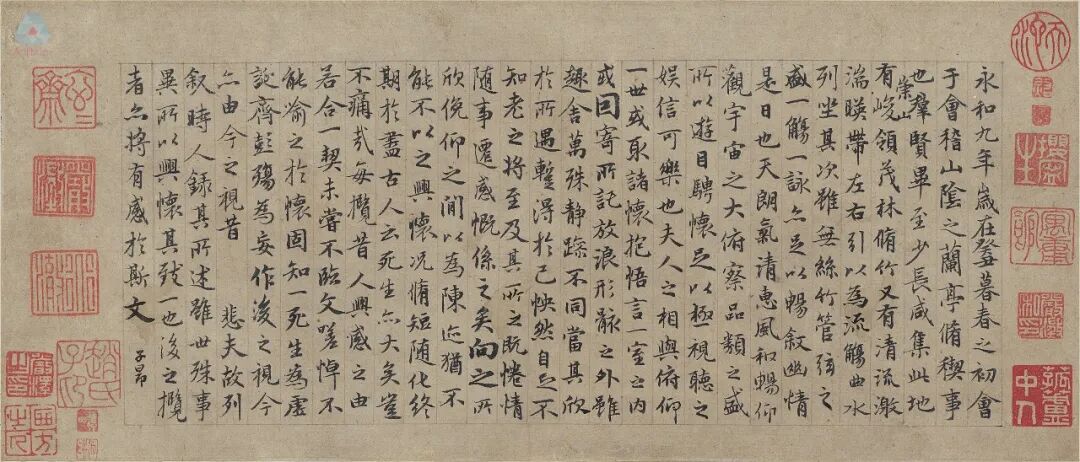 永和九年歲在癸暮春之初會
于會稽山陰之蘭亭脩稧事
也羣賢畢至少長咸集此地
有崇山峻領茂林脩竹又有清流激
湍暎帶左右引以為流觴曲水
列坐其次雖無絲竹管弦之
盛一觴一詠亦足以暢敘幽情
是日也天朗氣清惠風和暢仰
觀宇宙之大俯察品類之盛
所以遊目騁懷足以極視聽之
娛信可樂也夫人之相與俯仰
一世或取諸懷抱悟言一室之內
或因寄所託放浪形骸之外雖
趣舍萬殊静躁不同當其欣
於所遇蹔得於己怏然自足不
知老之將至及其所之既惓情
随事遷感慨係之矣向之所
欣俛仰之間以為陳迹猶不
能不以之興懷況脩短随化終
期於盡古人云死生亦大矣豈
不痛哉每攬昔人興感之由
若合一契未嘗不臨文嗟悼不
能喻之於懷固知一死生為虛
誕齊彭殤為妄作後之視今
亦由今之視昔 悲夫故列
叙時人錄其所述雖世殊事
異所以興懷其致一也後之攬
者亦將有感於斯文 子昂
趙氏子昂